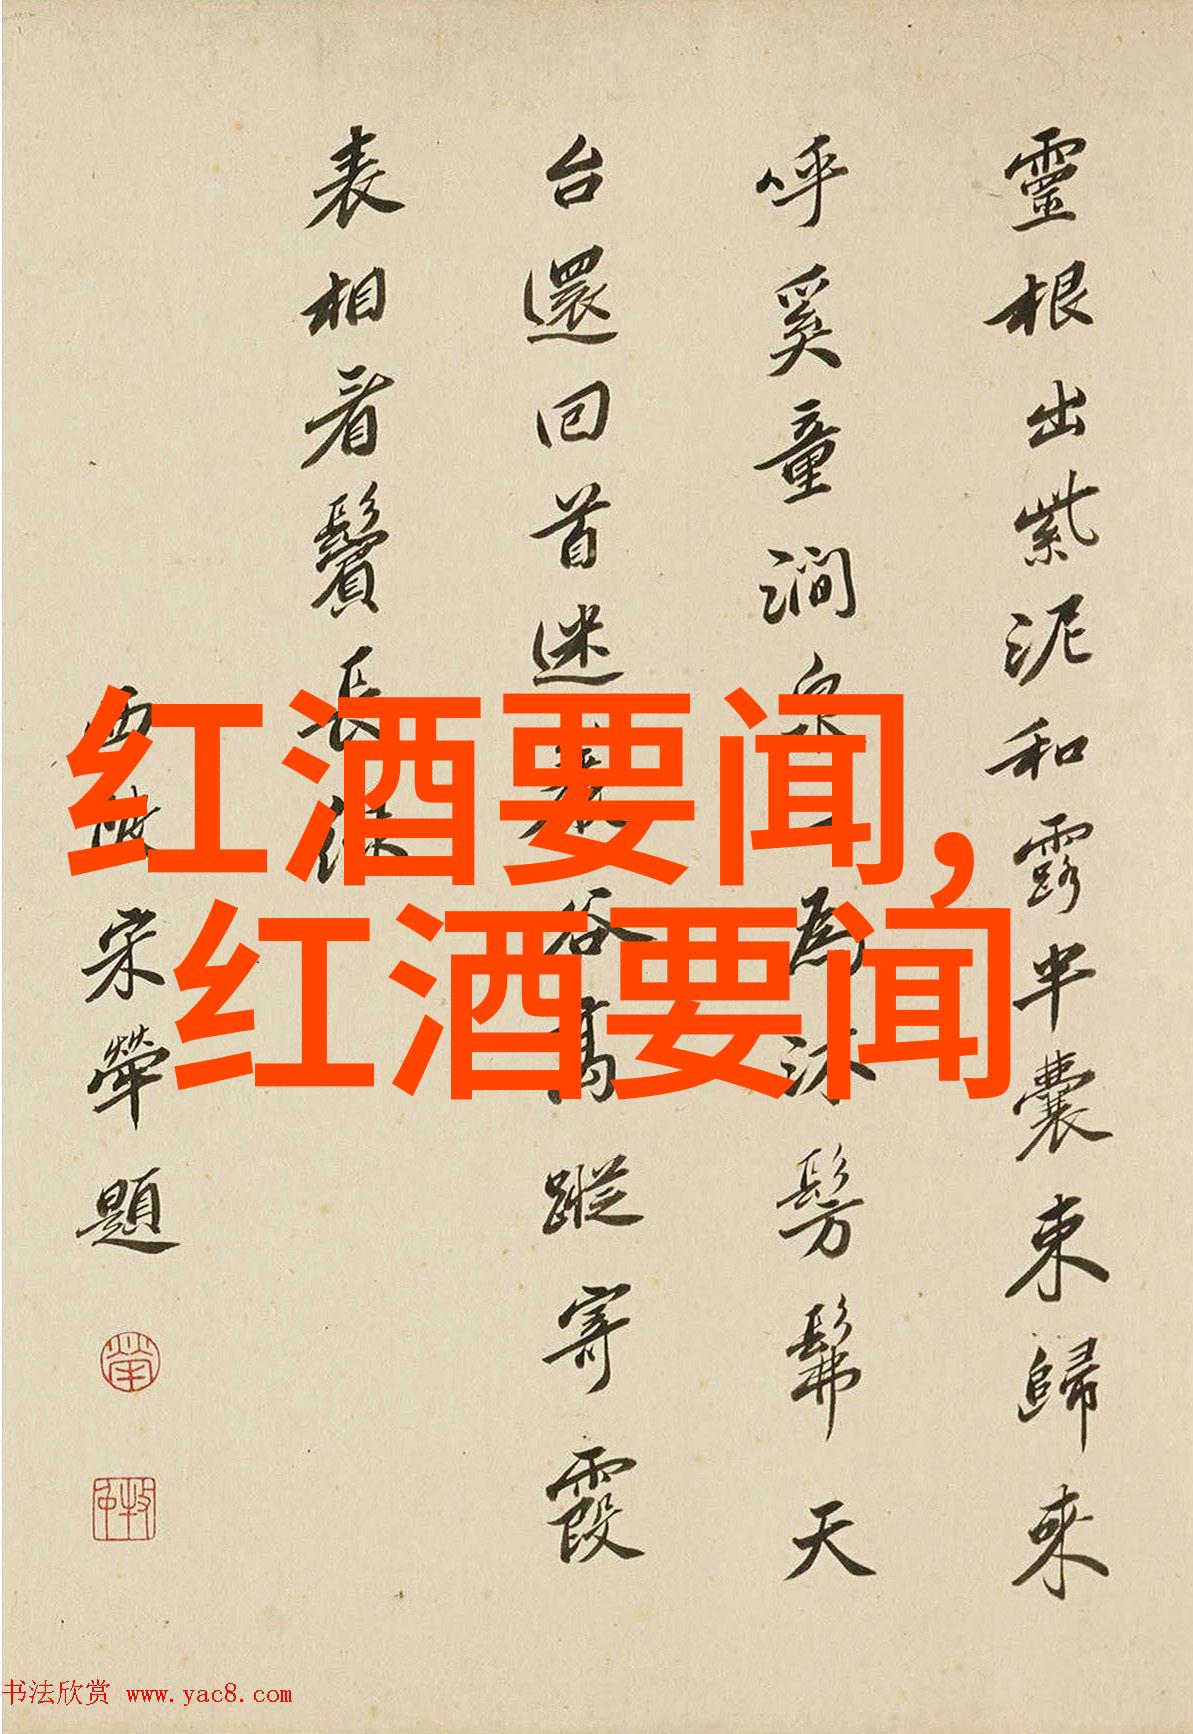 靈根出紫泥和露半囊束歸来
呼奚童澗泉為沐髣髴天
台還回首迷谷高蹤寄霞
表相看鬢長
宋犖題
红酒要闻,
红酒要闻
书法欣赏 www.yac8.com